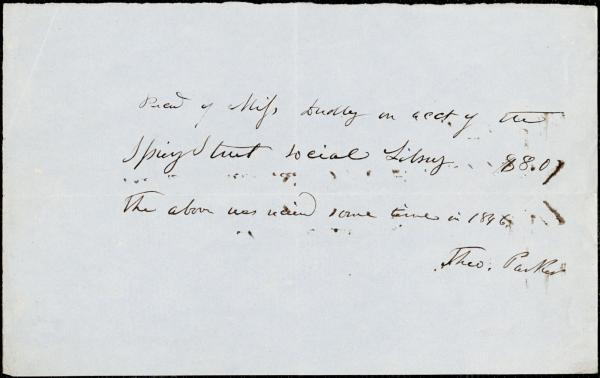 Recd of Miss Dudley on acct of the
Spring Street Social Library $8.07
The above was recievd some time in 1846
Theo. Parker